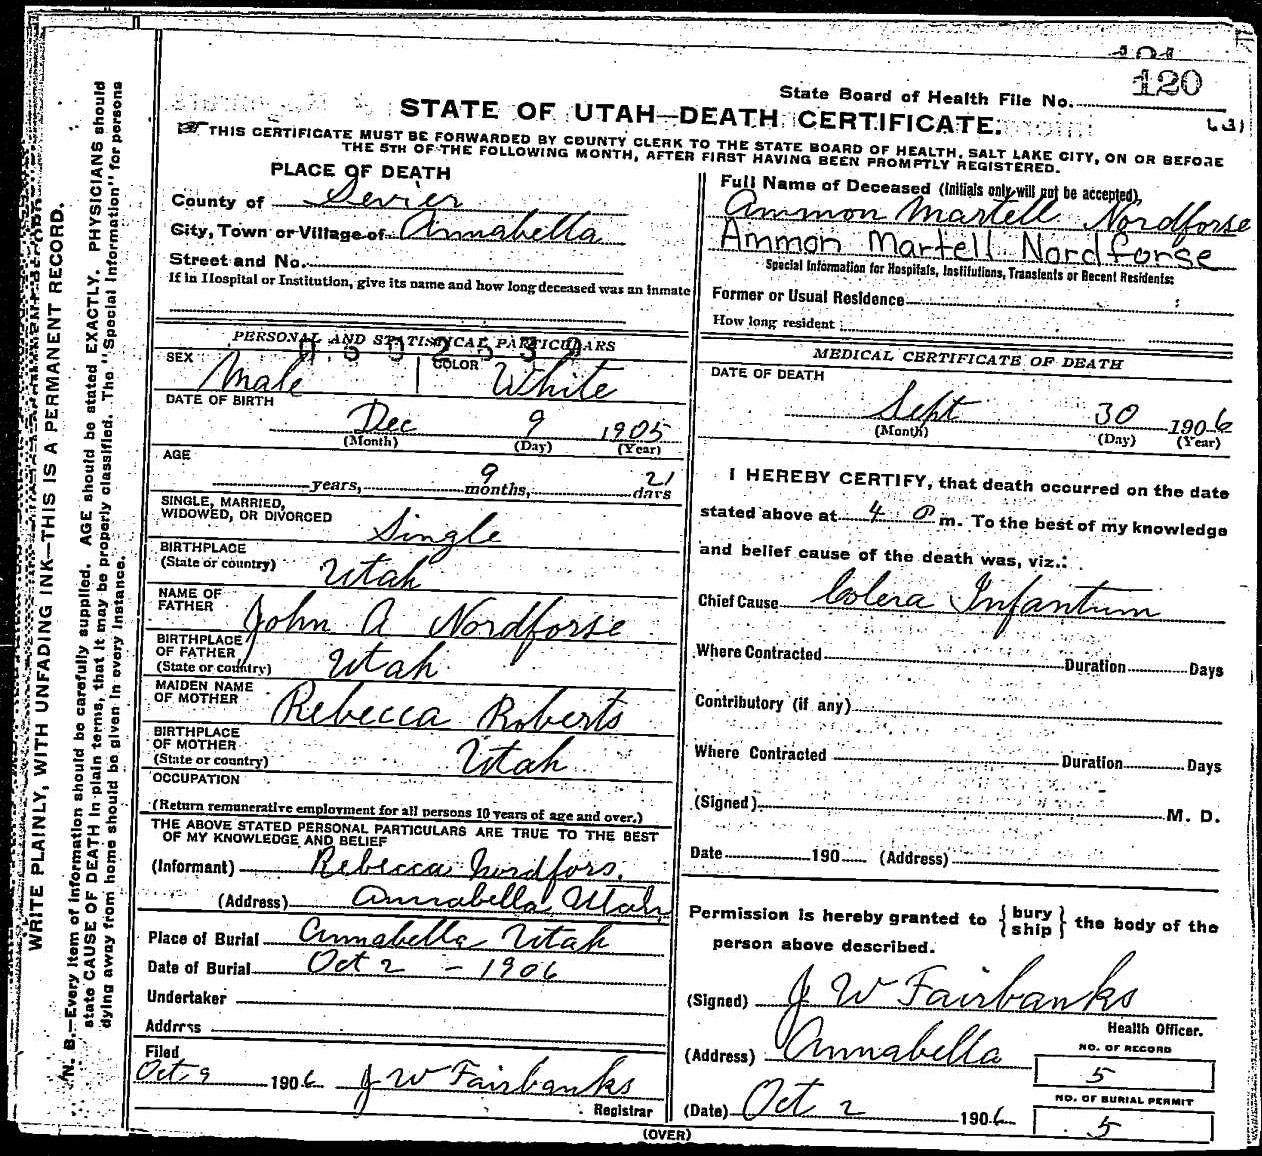 120
State Board of Health File No.
STATE OF UTAH—DEATH CERTIFICATE.
THIS CERTIFICATE MUST BE FORWARDED BY COUNTY CLERK TO THE STATE BOARD OF HEALTH, SALT LAKE CITY, ON OR BEFORE
THE 5TH OF THE FOLLOWING MONTH, AFTER FIRST HAVING BEEN PROMPTLY REGISTERED.
PLACE OF DEATH
County of Sevier
City, Town or Village of Annabella
Street and No.
If in Hospital or Institution, give its name and how long deceased was an inmate
PERSONAL AND STATISTICAL PARTICULARS
SEX Male COLOR White
DATE OF BIRTH
Dec 9 1905
(Month) (Day) (Year)
AGE
years, 9 months, 21 days
SINGLE, MARRIED,
WIDOWED, OR DIVORCED Single
BIRTHPLACE
(State or country) Utah
NAME OF
FATHER John A Nordforse
BIRTHPLACE
OF FATHER
(State or country) Utah
MAIDEN NAME
OF MOTHER Rebecca Roberts
BIRTHPLACE
OF MOTHER
(State or country) Utah
OCCUPATION
(Return remunerative employment for all persons 10 years of age and over.)
THE ABOVE STATED PERSONAL PARTICULARS ARE TRUE TO THE BEST
OF MY KNOWLEDGE AND BELIEF
(Informant) Rebecca Nordfors.
(Address) Annabella Utah
Place of Burial Annabella Utah
Date of Burial Oct 2 - 1906
Undertaker
Address
Filed
Oct 9 1906 J W Fairbanks
Registrar
Full Name of Deceased (Initials only will not be accepted),
Ammon Martell Nordforse
Ammon Martell Nordforse
Special Information for Hospitals, Institutions, Transients or Recent Residents:
Former or Usual Residence
How long resident :
MEDICAL CERTIFICATE OF DEATH
DATE OF DEATH
Sept 30 1906
(Month) (Day) (Year)
I HEREBY CERTIFY, that death occurred on the date
stated above at 4 P m. To the best of my knowledge
and belief cause of the death was, viz.:
Chief Cause Colera Infantum
Where Contracted Duration Days
Contributory (if any)
Where Contracted Duration Days
(Signed) M. D.
Date 190 (Address)
Permission is hereby granted to { bury ship } the body of the
person above described.
(Signed) J W Fairbanks
Health Officer.
(Address) Annabella
NO. OF RECORD
5
(Date) Oct 2 1906
NO. OF BURIAL PERMIT
5
(OVER)
WRITE PLAINLY, WITH UNFADING INK—THIS IS A PERMANENT RECORD.
N. B.—Every item of information should be carefully supplied. AGE should be stated EXACTLY. PHYSICIANS should
state CAUSE OF DEATH in plain terms, that it may be properly classified. The "Special Information" for persons
dying away from home should be given in every instance.